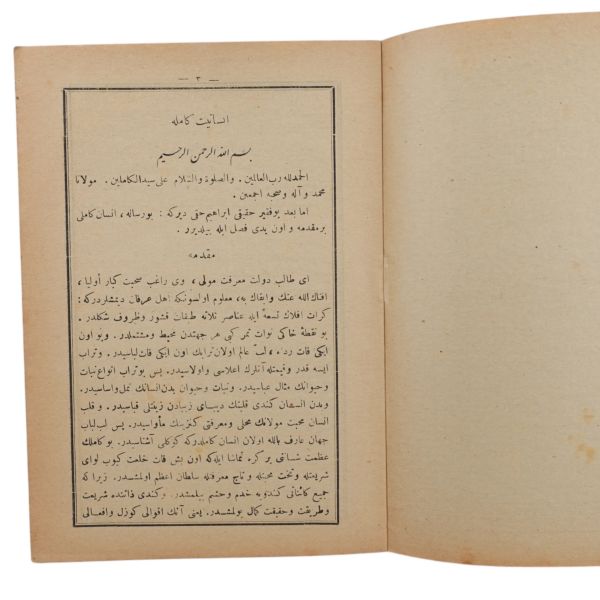 — ٣ —
انسانيت كامله
بسم الله الرحمن الرحيم
الحمدلله رب العالمين . والصلوة والسلام على سيدالكاملين . مولانا
محمد وآله وصحبه اجمعين .
اما بعد بوفقير حقيقى ابراهيم حقى ديركه : بورساله ، انسان كاملى
برمقدمه و اون يدى فصل ايله بيلديرر .
مقدمه
اى طالب دولت معرفت مولى ، وى راغب صحبت كبار أوليا ،
افناك الله عنك وابقاك به ، معلوم اولسونكه اهل عرفان ديمشلردركه :
كرات افلاك تسعۀ ايله عناصر ثلاثه طبقات قشور وظروف شكلدر .
بو نقطۀ خاكى نوات ثمر كبى هر جهتدن محيط ومشتملدر . وبو اون
ايكى قات رداء ، لب عالم اولان ترابك اون ايكى قات لباسيدر . وتراب
ايسه قدر وقيمتله آنلرك اعلاسى واولاسيدر . پس بوتراب انواع نبات
وحيوانك مثال عباسيدر . ونبات وحيوان بدن انسانك نمل واساسيدر .
وبدن انسان كندى قلبنك ديباى زيبادن زينتلى قباسيدر . و قلب
انسان محبت مولانك محلى ومعرفتى كنزينك مأواسيدر . پس لب لباب
جهان عارف بالله اولان انسان كاملدركه كوكلى آشناسيدر . بوكاملك
عظمت شانى بر كره تماشا ايله كه اون بش قات خلعت كيوب لواى
شريعتله وتخت محبتله و تاج معرفتله سلطان اعظم اولمشدر . زيرا كه
جميع كائناتى كندويه خدم وحشم بيلمشدر . وكندى ذاتنده شريعت
وطريقت وحقيقت كمال بولمشدر . يعنى آنك اقوالى كوزل وافعالى